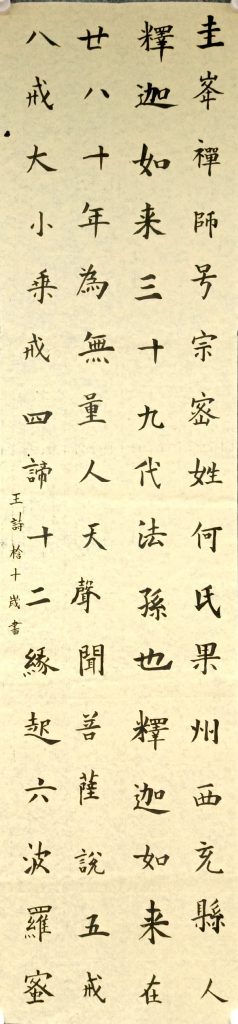 圭峯禪師号宗密姓何氏果州西充縣人
釋迦如来三十九代法孫也釋迦如来在
廿八十年為無量人天聲聞菩薩說五戒
八戒大小乗戒四諦十二緣起六波羅蜜
王詩 十歲書